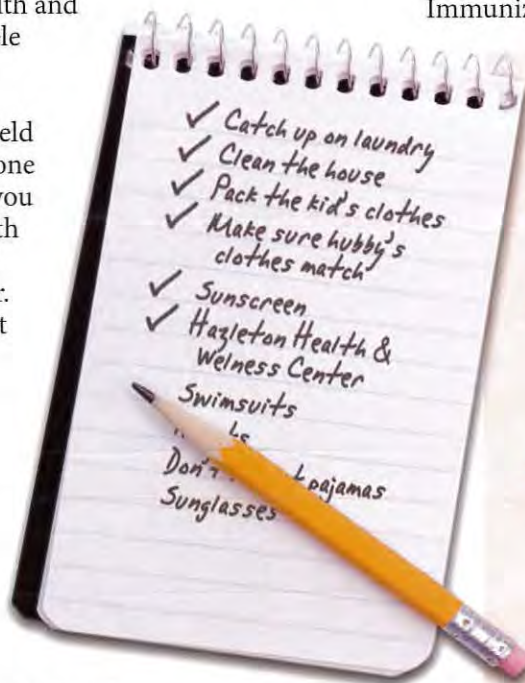 lth and
ele
eld
one
you
th
r.
t
Immuniz
✓ Catch up on laundry
✓ Clean the house
✓ Pack the kid's clothes
✓ Make sure hubby's
clothes match
✓ Sunscreen
✓ Hazleton Health &
Welness Center
Swimsuits
Don't pajamas
Sunglasses